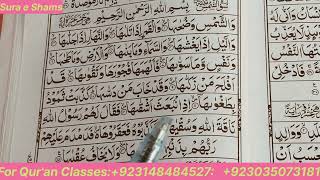 Sura e Shams
بِسْمِ اللّٰهِ الرَّحْمٰنِ الرَّحِيْمِ
وَالشَّمْسِ وَضُحٰىهَا وَالْقَمَرِ اِذَا تَلٰىهَا وَالنَّهَارِ اِذَا جَلّٰىهَا
وَالَّيْلِ اِذَا يَغْشٰىهَا وَالسَّمَآءِ وَمَا بَنٰىهَا وَالْاَرْضِ وَمَا طَحٰىهَا
وَنَفْسٍ وَّمَا سَوّٰىهَا فَاَلْهَمَهَا فُجُوْرَهَا وَتَقْوٰىهَا قَدْ
اَفْلَحَ مَنْ زَكّٰىهَا وَقَدْ خَابَ مَنْ دَسّٰىهَا كَذَّبَتْ ثَمُوْدُ
بِطَغْوٰىهَا اِذِ انْۢبَعَثَ اَشْقٰىهَا فَقَالَ لَهُمْ رَسُوْلُ اللّٰهِ
نَاقَةَ اللّٰهِ وَسُقْيٰهَا فَكَذَّبُوْهُ فَعَقَرُوْهَا فَدَمْدَمَ عَلَيْهِمْ
رَبُّهُمْ وَلَا يَخَافُ عُقْبٰهَا
For Qur'an Classes:+923148484527: +923035073181